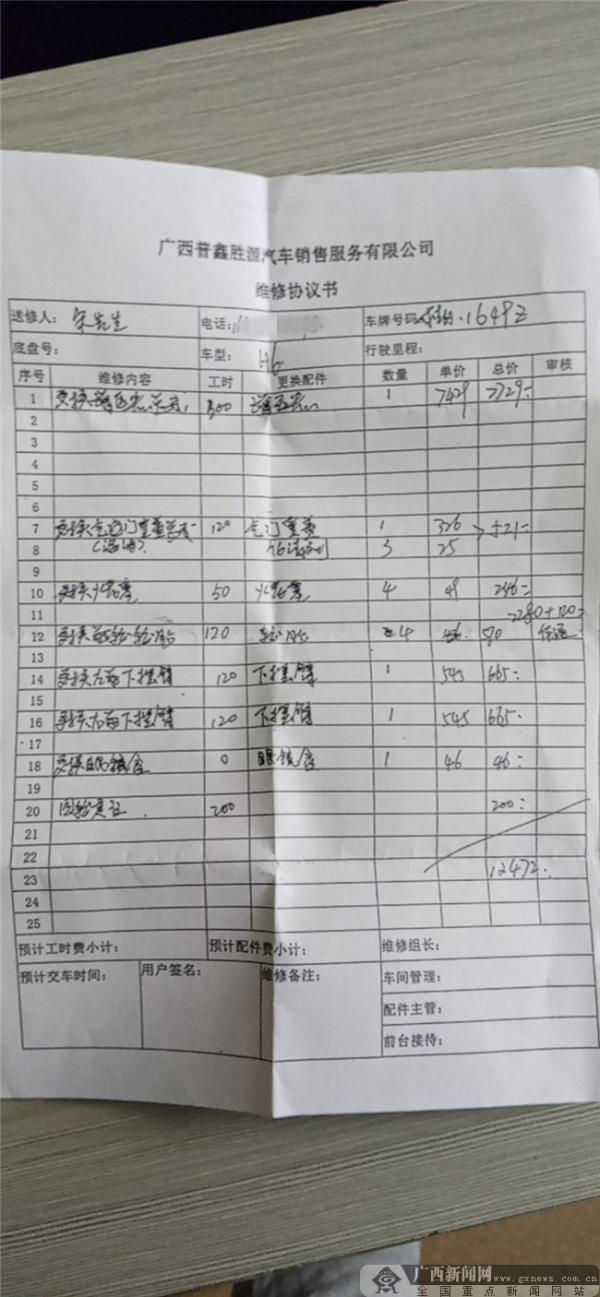 广西普鑫胜源汽车销售服务有限公司
维修协议书
送修人: 宋先生 电话: 车牌号码: 1649Z
底盘号: 车型: H6 行驶里程:
序号 维修内容 工时 更换配件 数量 单价 总价 审核
1 更换 300 1 7429 7729
2
3
4
5
6
7 120 气门室盖 1 326
8 3 25
9
10 更换火花塞 50 火花塞 4 49 246
11 2280+120
12 120 4 580
13
14 更换左前下摆臂 120 下摆臂 1 545 665
15
16 更换右前下摆臂 120 下摆臂 1 545 665
17
18 更换眼镜盒 0 眼镜盒 1 46 46
19
20 四轮定位 200 200
21
22
23 12472
24
25
预计工时费小计: 预计配件费小计: 维修组长:
预计交车时间: 用户签名: 维修备注: 车间管理:
配件主管:
前台接待:
广西新闻网 www.gxnews.com.cn
全国重点新闻网站